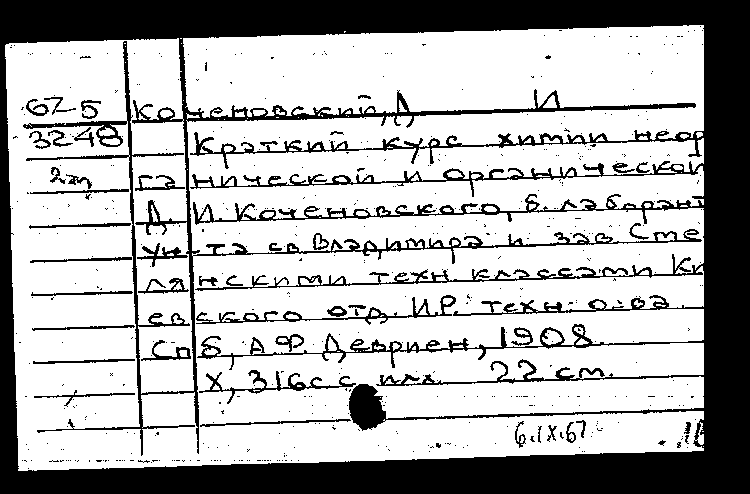 67-5 Коченовский, Д И
3248 Краткий курс химии неор
2эз ганической и органической
Д. И. Коченовского, б. лаборант
ун-та св. Владимира и зав Сте
лянскими техн. классами Ки
евского отд. И.Р. техн. о-ва.
Спб, А.Ф. Девриен, 1908.
X, 316 с с илл. 22 см.
6.IX.67